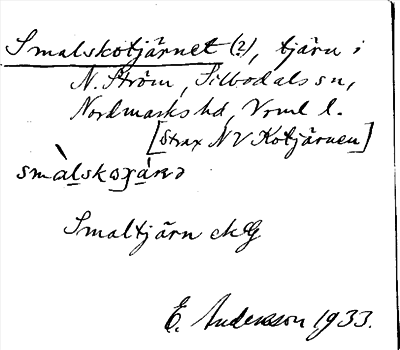 Smalskotjärnet (?), tjärn i
N. Ström, Silbodals sn,
Nordmarks hd, Vrml l.
[strax NV Kotjärnen]
Smaltjärn ekG
E. Andersson 1933.